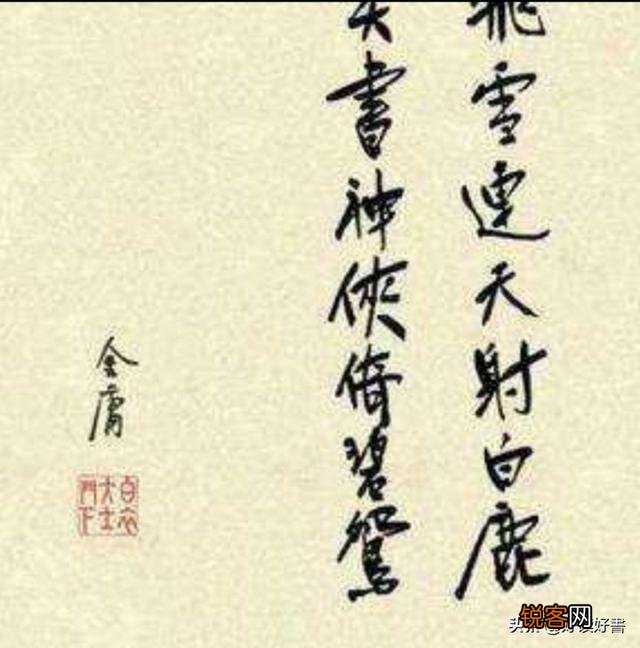 飛雪連天射白鹿
笑書神俠倚碧鴛
金庸
白衣大士門下
锐客网